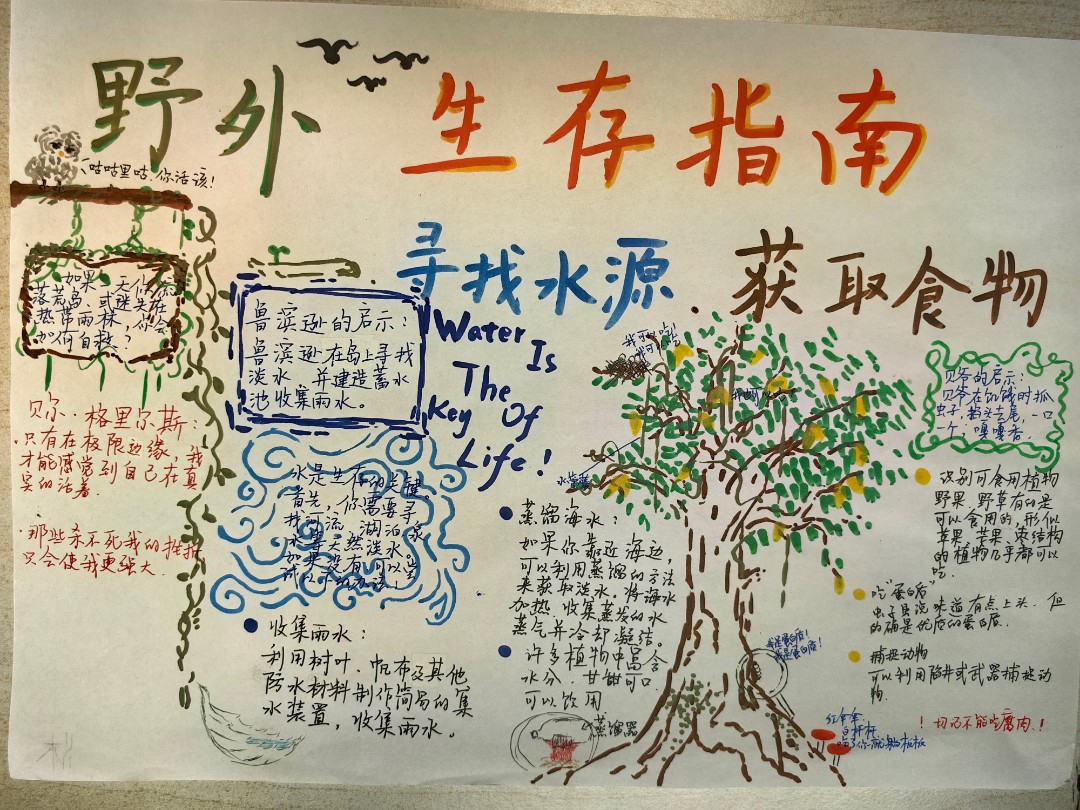 野外生存指南
咕咕里咕,你活该!
寻找水源、获取食物
如果一天你
落荒岛、或迷失在
热带雨林,你会
如何自救?
贝尔·格里尔斯:
·只有在极限边缘,我
才能感觉到自己在真
实的活着.
·那些杀不死我的挫折
只会使我更强大.
鲁滨逊的启示:
鲁滨逊在岛上寻找
淡水,并建造蓄水
池收集雨水。
Water
Is
The
Key Of
Life!
水是生存的关键。
首先,你需要寻
找河流,湖泊,泉
水等天然淡水。
如果没有可以尝
● 收集雨水:
利用树叶.帆布及其他
防水材料制作简易的集
水装置,收集雨水。
● 蒸馏海水:
如果你靠近海边,
可以利用蒸馏的方法
来获取淡水.将海水
加热.收集蒸发的水
蒸气并冷却凝结。
● 许多植物中富含
水分.甘甜可口
可以饮用
蒸馏器
我可以吃!
我可以吃
贝爷的启示:
贝爷在饥饿时抓
虫子,掐头去尾,一口
一个,嘎嘎香.
● 识别可食用植物
野果,野草有的是
可以食用的,形似
苹果,苦果,枣结构
的植物几乎都可以
吃.
● 吃"蛋白质"
虫子虽说味道有点上头.但
的确是优质的蛋白质.
● 捕捉动物
可以利用陷井或武器捕捉动
物.
我是蛋白质!
我是蛋白质!
红伞伞
白杆杆
吃了你就躺板板
!切记不能吃腐肉.!